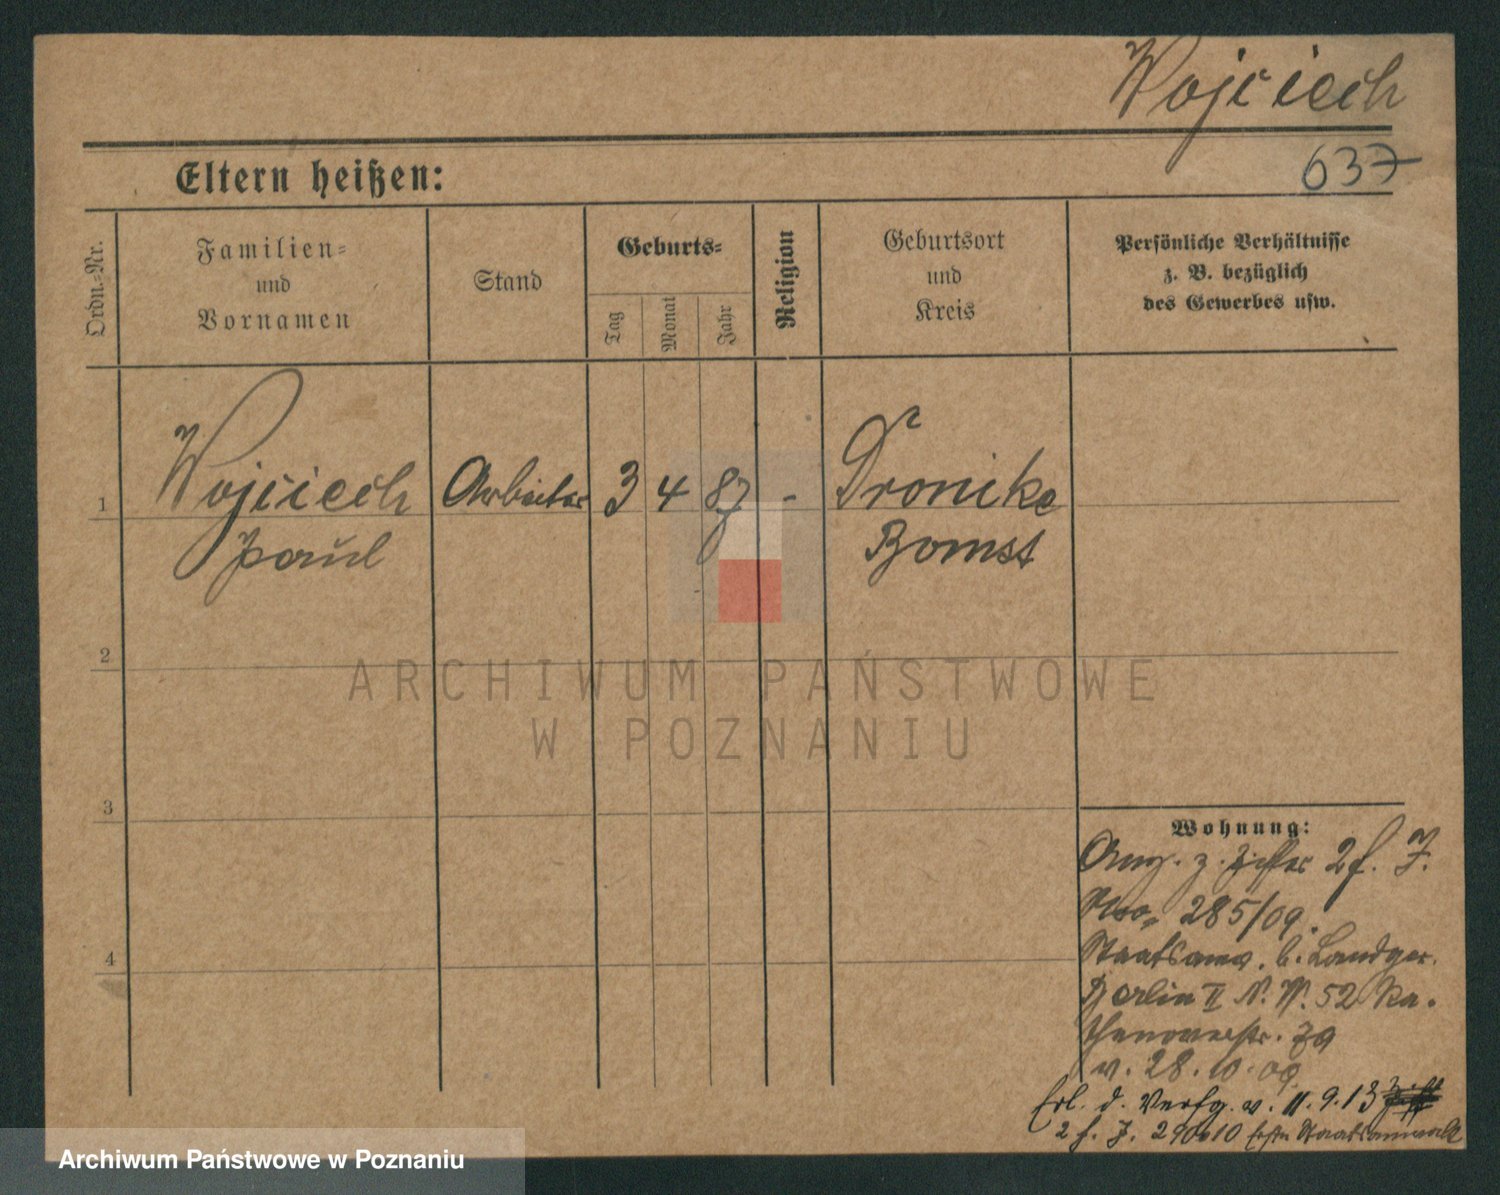 Wojciech
637
Eltern heißen:
Ordn.-Nr.
Familien-
und
Vornamen
Stand
Geburts-
Tag
Monat
Jahr
Religion
Geburtsort
und
Kreis
Persönliche Verhältnisse
z. B. bezüglich
des Gewerbes usw.
1
Wojciech
Paul
Arbeiter
3
4
87
-
Dronike
Bomst
2
ARCHIWUM PAŃSTWOWE
W POZNANIU
3
Wohnung:
z. Ziffer 2 f. J.
No. 285/09.
Staatsanw. b. Landger.
Berlin II N. W. 52 Ra-
thenowerstr.
v. 28. 10. 09.
4
Erl. d. Verfg. v. 11. 9. 13
2 f. J. Staatsanwalt
Archiwum Państwowe w Poznaniu